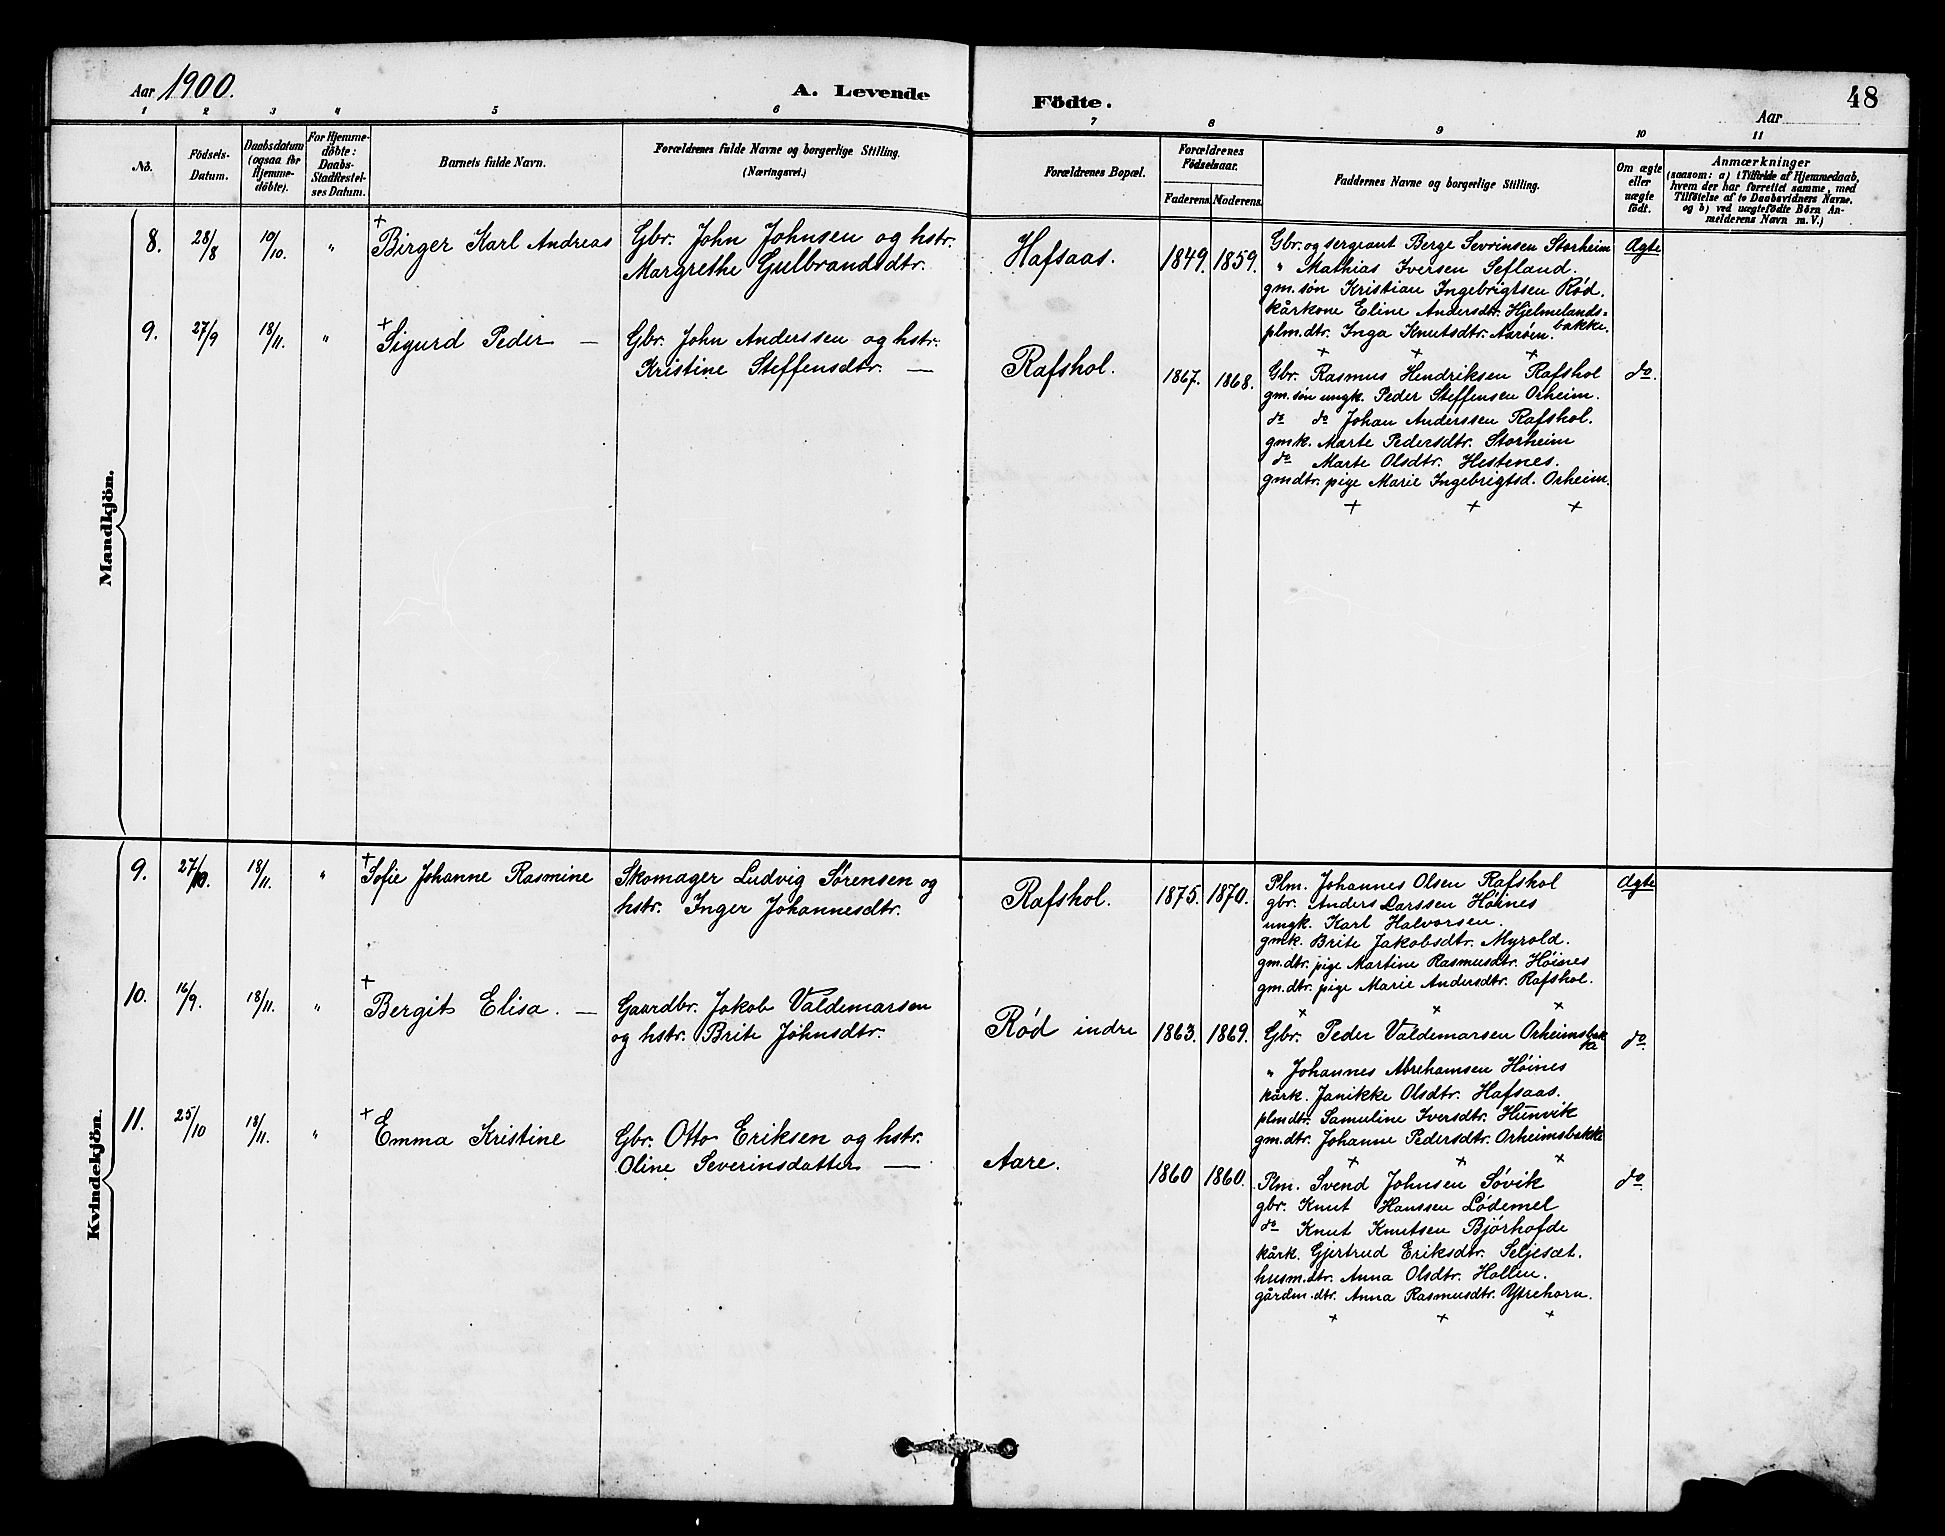 Aar 1900.
A. Levende
Födte.
Aar
48
1 2 3 4 5 6 7 8 9 10 11
No.
Födsels-
Datum.
Daabsdatum
(ogsaa for
Hjemme-
döbte).
For Hjemme-
döbte:
Daabs-
Stadfæstel-
ses Datum.
Barnets fulde Navn.
Forældrenes fulde Navne og borgerlige Stilling.
(Næringsvei.)
Forældrenes Bopæl.
Forældrenes
Födselsaar.
Faderens. Moderens.
Faddernes Navne og borgerlige Stilling.
Om ægte
eller
uægte
födt.
Anmærkninger
(saasom: a) i Tilfælde af Hjemmedaab,
hvem der har forrettet samme, med
Tilföielse af to Daabsvidners Navne,
og b) ved uægtefödte Börn An-
melderens Navn m. V.)
Mandkjön.
8. 28/8 10/10. " + Birger Karl Andreas
Gbr. John Johnsen og hstr.
Margrethe Gulbrandsdtr.
Hafsaas. 1849. 1859.
Gbr. og sergeant Berge Sevrinsen Storheim
" Mathias Iversen Sefland.
gm. søn Kristian Ingebrigtsen Rød.
kårkone Eline Andersdtr. Hjelmelands-
bakke.
plm. dtr. Inga Knutsdtr. Aarøen.
+ + +
Ægte
9. 27/9 18/11. " + Sigurd Peder —
Gbr. John Anderssen og hstr.
Kristine Steffensdtr. —
Rafshol. 1867. 1868.
Gbr. Rasmus Hendriksen Rafshol
gm. søn ungk. Peder Steffensen Orheim.
do do Johan Anderssen Rafshol.
gmk. Marte Pedersdtr. Storheim
do Marte Olsdtr. Hestenes.
gmdtr. pige Marie Ingebrigtsd. Orheim.
+ + +
do.
Kvindekjön.
9. 27/10. 18/11. " + Sofie Johanne Rasmine
Skomager Ludvig Sørensen og
hstr. Inger Johannesdtr.
Rafshol. 1875. 1870.
Plm. Johannes Olsen Rafshol
gbr. Anders Larssen Høines
ungk. Karl Halvorsen.
gmk. Brite Jakobsdtr. Myrold.
gm. dtr. pige Martine Rasmusdtr. Høines
gm. dtr. pige Marie Andersdtr. Rafshol.
× × ×
Ægte
10. 16/9. 18/11. " + Bergit Elisa. —
Gaardbr. Jakob Valdemarsen
og hstr. Brite Johnsdtr.
Rød indre 1863. 1869.
Gbr. Peder Valdemarsen Orheimsbak
ka
" Johannes Abrehamsen Høines
kårk. Janikke Olsdtr. Hafsaas.
plmdtr. Samuline Iversdtr. Hunvik
gm. dtr. Johanne Pedersdtr. Orheimsbakke
× × ×
do.
11. 25/10 18/11. " + Emma Kristine
Gbr. Otto Eriksen og hstr.
Oline Severinsdatter —
Aare. 1860 1860.
Plm. Svend Johnsen Søvik
gbr. Knut Hanssen Lødemel
do Knut Knutsen Bjørhofde
kårk. Gjertrud Eriksdtr. Seljesæt.
husm. dtr. Anna Olsdtr. Hollen.
gårdm. dtr. Anna Rasmusdtr. Ytrehorn.
+ + +
do.